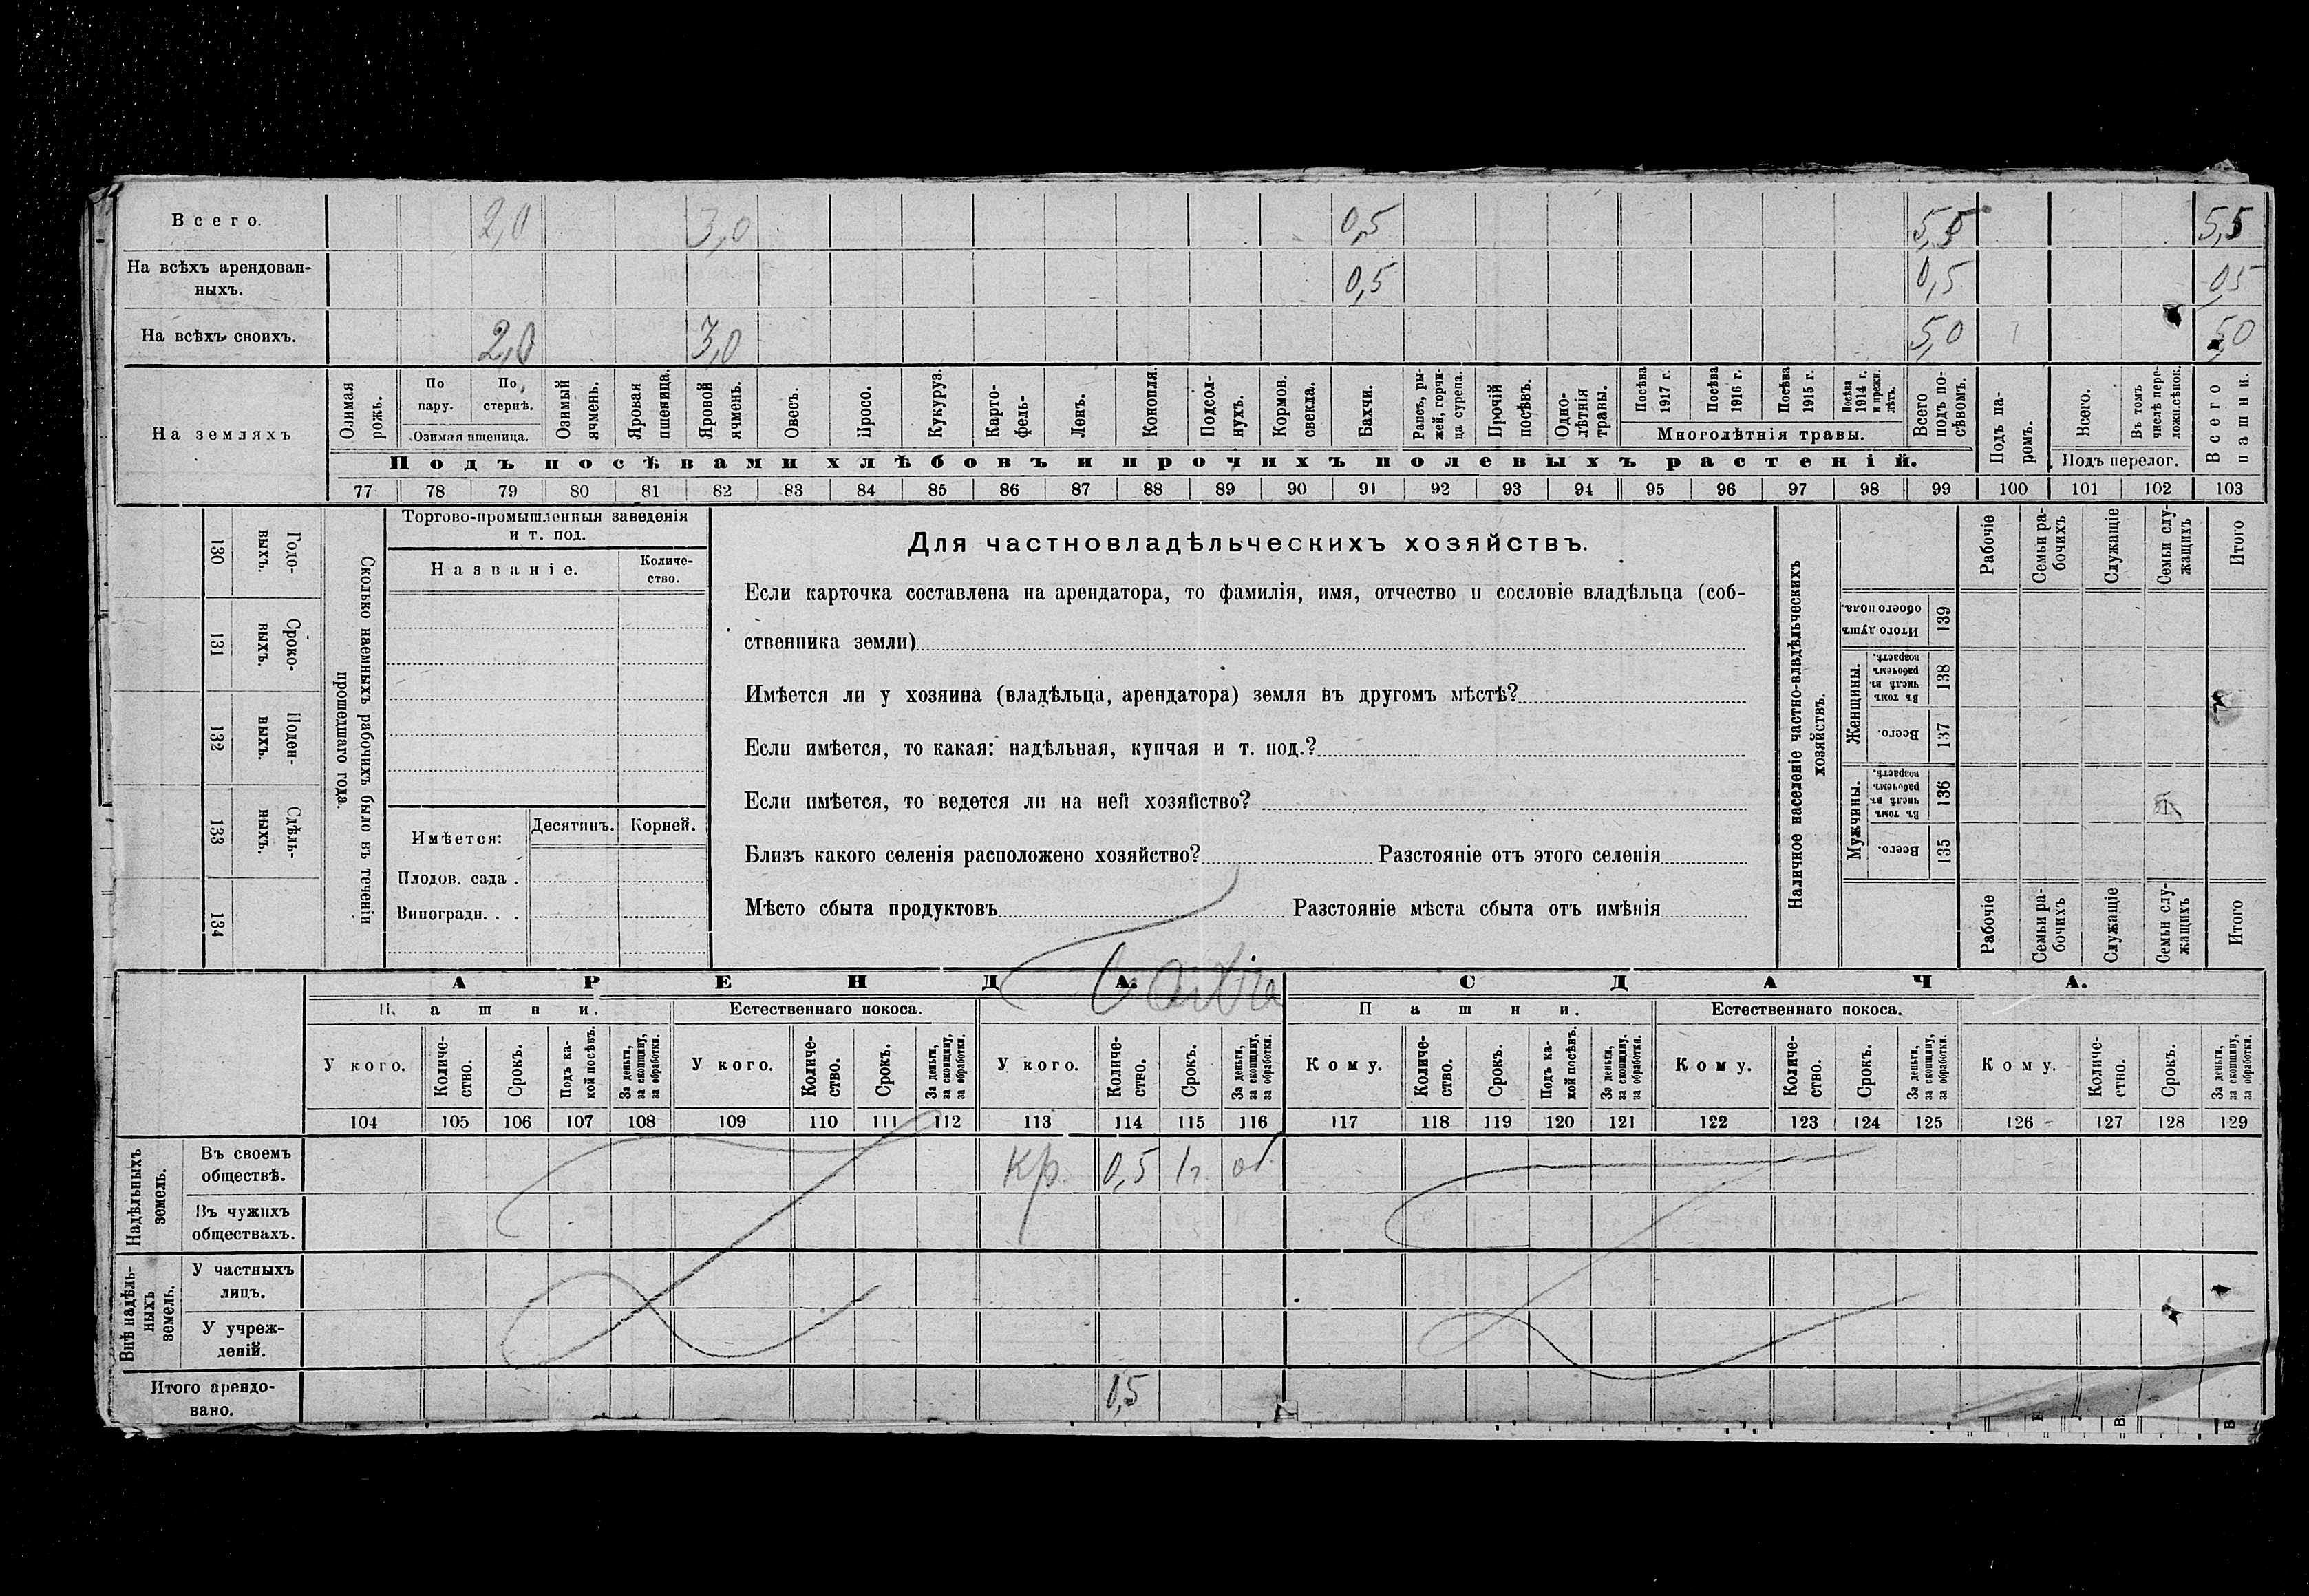 Всего. 2,0 3,0 0,5 5,5 5,5
На всѣхъ арендован-
ныхъ. 0,5 0,5 05
На всѣхъ своихъ. 2,0 3,0 5,0 50
На земляхъ
Озимая рожь.
По пару.
По стернѣ.
Озимая пшеница.
Озимый ячмень.
Яровая пшеница.
Яровой ячмень.
Овесъ.
Просо.
Кукуруз.
Карто-
фель-
Ленъ.
Конопля.
Подсол-
нухъ.
Кормов.
свекла.
Бахчи.
Рапсъ, ры-
жей, горчи-
ца сурепа.
Прочій
посѣвъ.
Одно-
лѣтнія
травы.
Посѣва
1917 г.
Посѣва
1916 г.
Посѣва
1915 г.
Посѣва
1914 г.
и прежн.
лѣтъ.
Многолѣтнія травы.
Всего
подъ по-
сѣвомъ.
Подъ па-
ромъ.
Всего.
Въ томъ
числѣ пере-
ложн.сѣнок.
Подъ перелог.
Всего
пашни.
Подъ посѣвами хлѣбовъ и прочихъ полевыхъ растеній.
77 78 79 80 81 82 83 84 85 86 87 88 89 90 91 92 93 94 95 96 97 98 99 100 101 102 103
130 Годо-
выхъ.
131 Сроко-
выхъ.
132 Поден-
ныхъ.
133 Сдѣль-
ныхъ.
134
Сколько наемныхъ рабочихъ было въ теченіи
прошедшаго года.
Торгово-промышленныя заведенія
и т. под.
Названіе.
Количе-
ство.
Имѣется: Десятинъ. Корней.
Плодов. сада .
Виноградн. . .
Для частновладѣльческихъ хозяйствъ.
Если карточка составлена на арендатора, то фамилія, имя, отчество и сословіе владѣльца (соб-
ственника земли)
Имѣется ли у хозяина (владѣльца, арендатора) земля въ другомъ мѣстѣ?
Если имѣется, то какая: надѣльная, купчая и т. под.?
Если имѣется, то ведется ли на ней хозяйство?
Близъ какого селенія расположено хозяйство? Разстояніе отъ этого селенія
Мѣсто сбыта продуктовъ Разстояніе мѣста сбыта отъ имѣнія
Наличное населеніе частно-владѣльческихъ
хозяйствъ.
Рабочіе
Семьи ра-
бочихъ
Служащіе
Семьи слу-
жащихъ
Итого
Итого душъ
обоего пола. 139
Женщины.
Въ томъ
числѣ въ
рабочемъ
возрастѣ. 138
Всего. 137
Мужчины.
Въ томъ
числѣ въ
рабочемъ
возрастѣ. 136
Всего. 135
Рабочіе
Семьи ра-
бочихъ
Служащіе
Семьи слу-
жащихъ
Итого
АРЕНДА. СДАЧА.
Пашни. Естественнаго покоса. Пашни. Естественнаго покоса.
У кого.
Количе-
ство.
Срокъ.
Подъ ка-
кой посѣвъ.
За деньги,
за скопщину,
за обработки.
У кого.
Количе-
ство.
Срокъ.
За деньги,
за скопщину,
за обработки.
У кого.
Количе-
ство.
Срокъ.
За деньги,
за скопщину,
за обработки.
Кому.
Количе-
ство.
Срокъ.
Подъ ка-
кой посѣвъ.
За деньги,
за скопщину,
за обработки.
Кому.
Количе-
ство.
Срокъ.
За деньги,
за скопщину,
за обработки.
Кому.
Количе-
ство.
Срокъ.
За деньги,
за скопщину,
за обработки.
104 105 106 107 108 109 110 111 112 113 114 115 116 117 118 119 120 121 122 123 124 125 126 127 128 129
Надѣльныхъ
земель.
Въ своемъ
обществѣ. Кр. 0,5 1г. об.
Въ чужихъ
обществахъ.
Внѣ надѣль-
ныхъ
земель.
У частныхъ
лицъ.
У учреж-
деній.
Итого арендо-
вано. 0,5